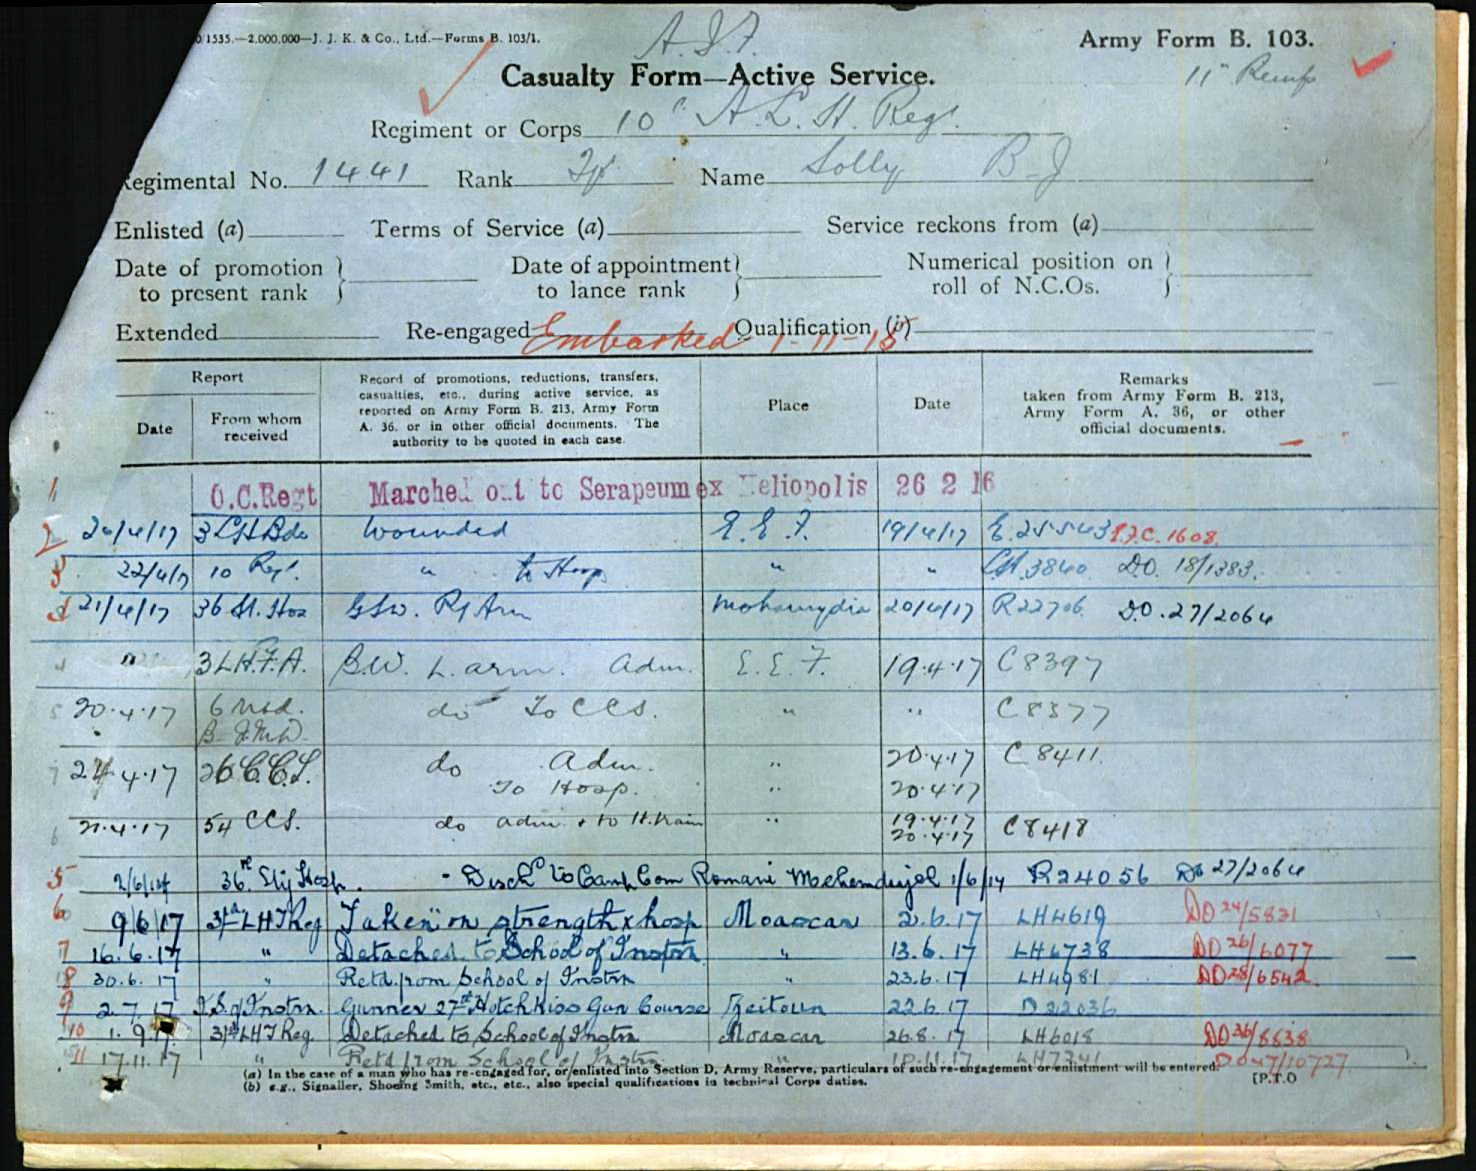 1535.—2,000,000—J. J. K. & Co., Ltd.—Forms B. 103/1.
A.I.F.
Army Form B. 103.
Casualty Form—Active Service.
11" Reinfs
Regiment or Corps 10th A.L.H. Regt.
Regimental No. 1441 Rank Tpr Name Solly B J
Enlisted (a) Terms of Service (a) Service reckons from (a)
Date of promotion to present rank } Date of appointment to lance rank } Numerical position on roll of N.C.Os. }
Extended Re-engaged Qualification (b)
Embarked 1-11-15
Report
Date
From whom received
Record of promotions, reductions, transfers,
casualties, etc., during active service, as
reported on Army Form B. 213, Army Form
A. 36. or in other official documents. The
authority to be quoted in each case.
Place
Date
Remarks
taken from Army Form B. 213,
Army Form A. 36, or other
official documents.
1 O.C.Regt Marched out to Serapeum ex Heliopolis 26 2 16
2 20/4/17 3 LH Bde Wounded E.E.F. 19/4/17 E.25543 1608
3 22/4/17 10 Regt. " to Hosp " " 3860 DO. 18/1383.
4 21/4/17 36 St. Hos GSW. Rt Arm Mohamydia 20/4/17 R22706 DO.27/2064
3 L.H.F.A. B.W. L. arm. Adm. E.E.F. 19.4.17 C8397
5 20.4.17 6 do To CCS. " " C8377
7 24.4.17 26 C.C.S. do Adm. " 20.4.17 C8411
To Hosp. " 20.4.17
6 21.4.17 54 CCS. do adm. & to H.train " 19.4.17 C8418
20.4.17
5 2/6/17 36 Sty Hosp. Disch to Camp Com Romani 1/6/17 R24056 DO 27/2064
6 9/6/17 3rd LHT Reg Taken on strength x hosp Moascar 2.6.17 LH4619 DO 24/5831
7 16.6.17 " Detached to School of Instrn " 13.6.17 LH4738 DO 26/6077
8 30.6.17 " Retd from School of Instrn 23.6.17 LH4981 DO 28/6542
9 2.7.17 I.S. of Instrn. Gunner 27th Hotchkiss Gun Course Zeitoun 22.6.17 D22036
10 1.9.17 3rd LHT Reg. Detached to School of Instrn Moascar 26.8.17 LH6018 DO 36/8638
11 17.11.17 " Retd from School of Instrn " 11.17 LH7341 DO 47/10727
(a) In the case of a man who has re-engaged for, or enlisted into Section D, Army Reserve, particulars of such re-engagement or enlistment will be entered.
(b) e.g., Signaller, Shoeing Smith, etc., etc., also special qualifications in technical Corps duties.
[P.T.O